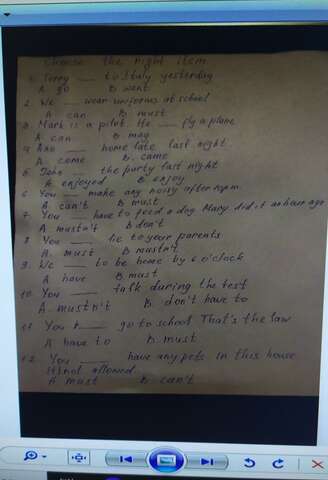 Choose the right item
1. Terry ___ to Italy yesterday
A go B went
2. We ___ wear uniforms at school
A can B must
3. Mark is a pilot. He ___ fly a plane
A can B may
4. Ann ___ home late last night
A come B. came
5. John ___ the party last night
A enjoyed B enjoy
6. You ___ make any noisy after
A can't B must
7. You ___ have to feed a dog Mary did it an hour ago
A mustn't B don't
8. You ___ lie to your parents
A must B mustn't
9. We ___ to be home by 6 o'clock
A have B must
10. You ___ talk during the test
A. mustn't B. don't have to
11. You ___ go to school That's the law
A have to B. must
12. You ___ have any pets in this house
It) not allowed
A must B. can't